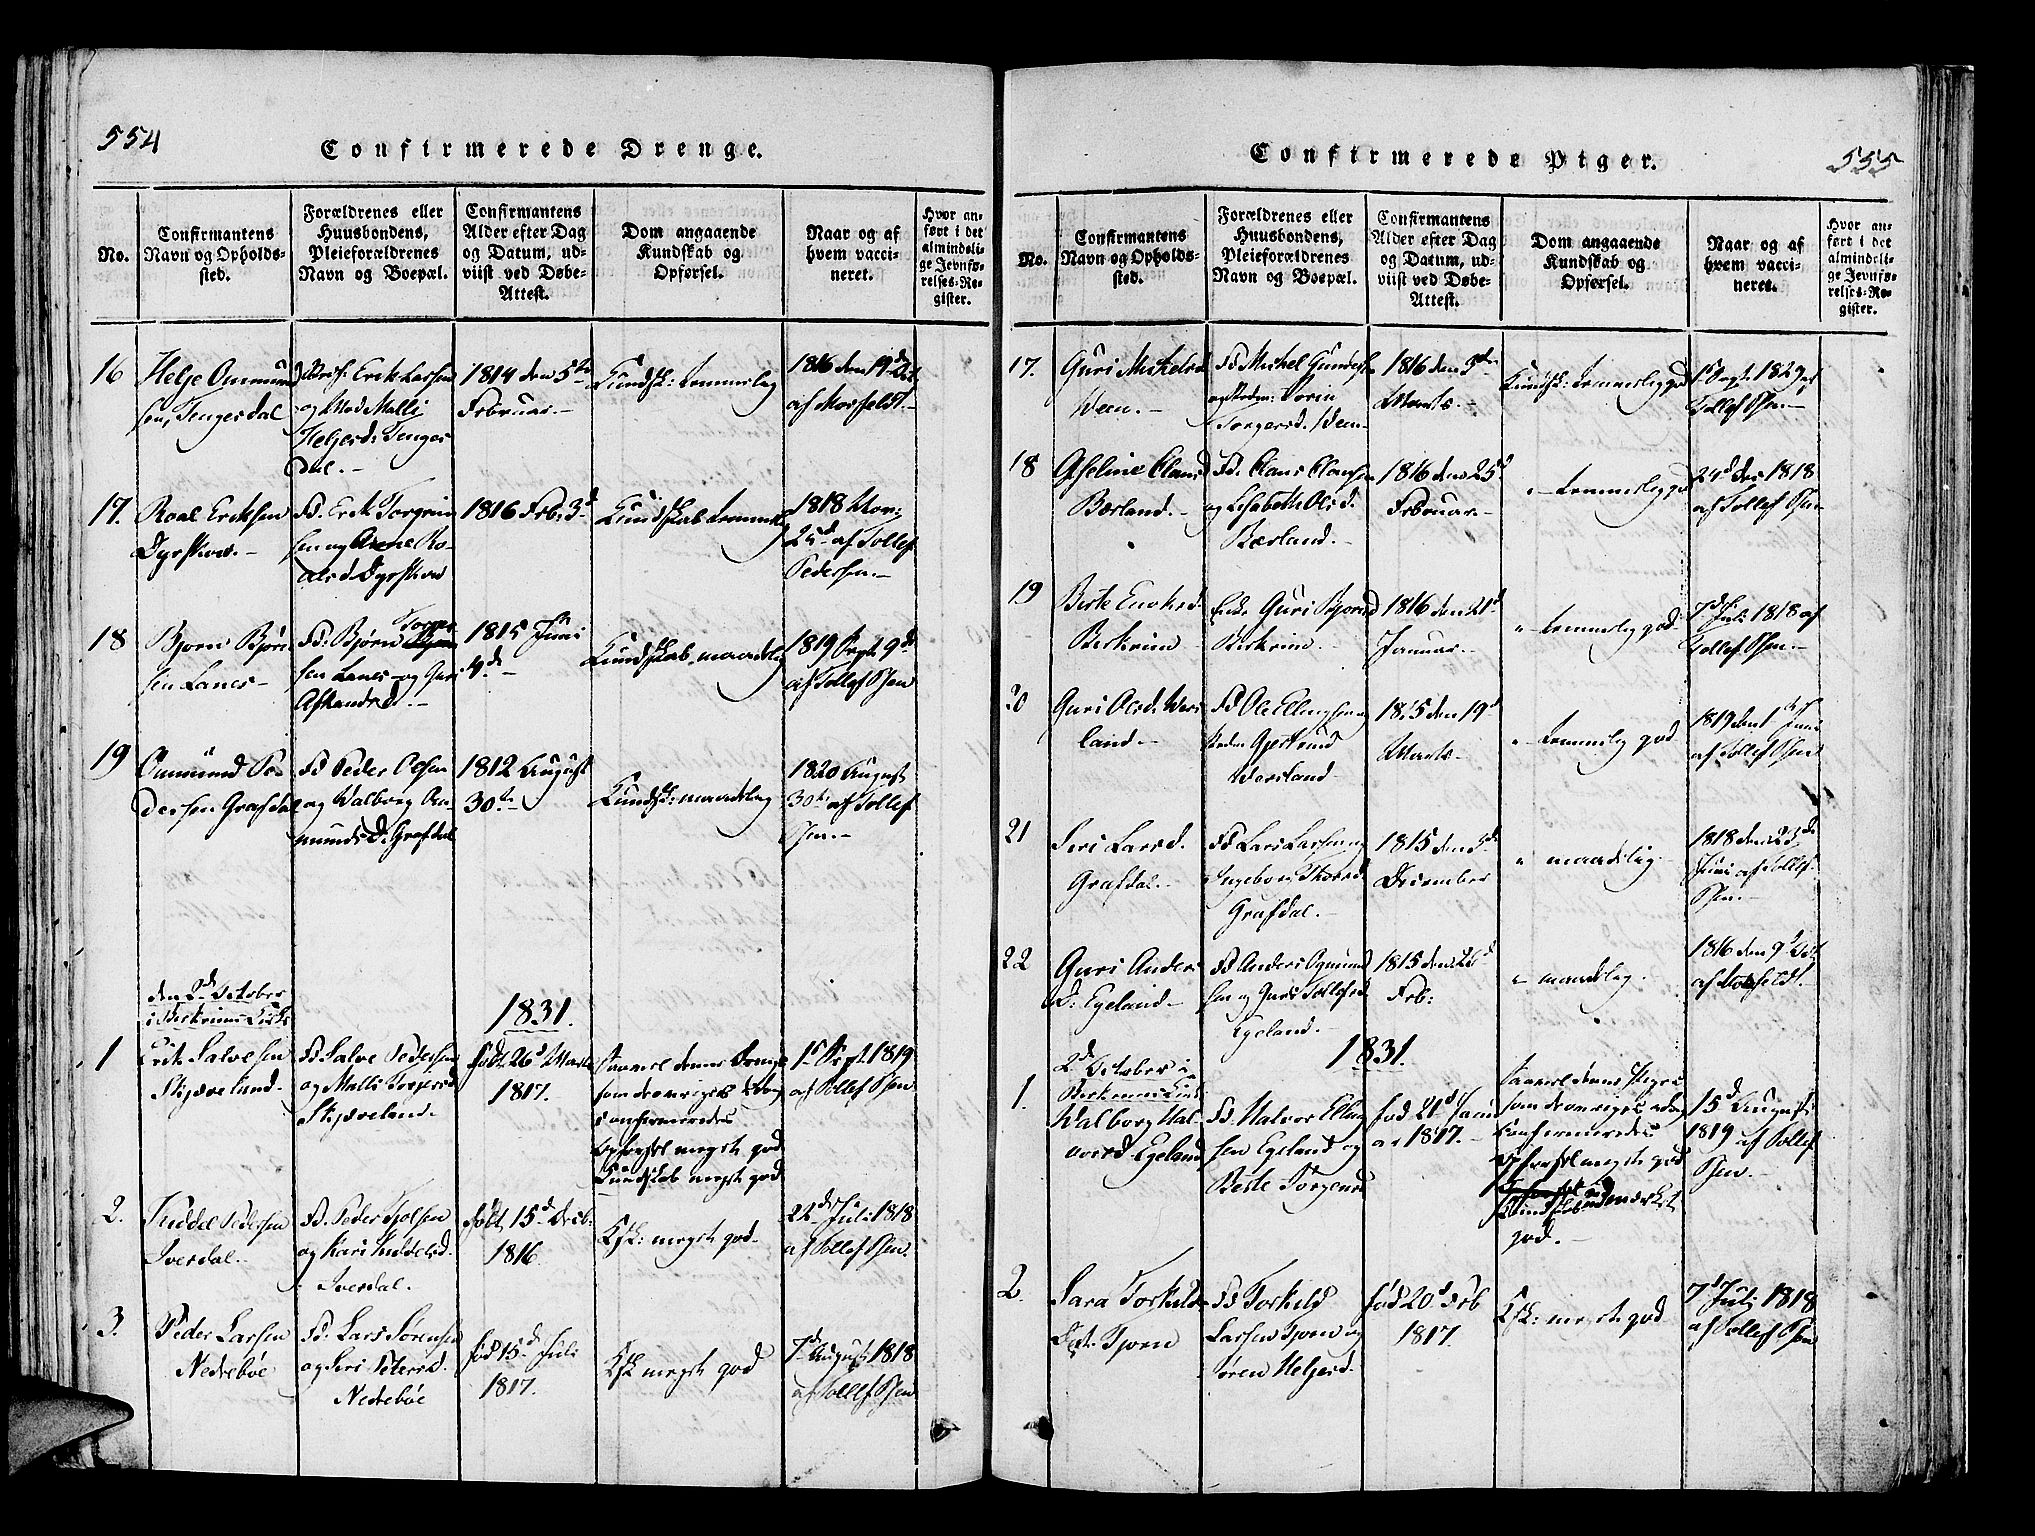 554
Confirmerede Drenge.
No.
Confirmantens
Navn og Opholds-
sted.
Forældrenes eller
Huusbondens,
Pleieforældrenes
Navn og Boepæl.
Confirmantens
Alder efter Dag
og Datum, ud-
viist ved Døbe-
Attest.
Dom angaaende
Kundskab og
Opførsel.
Naar og af
hvem vacci-
neret.
Hvor an-
ført i det
almindeli-
ge Jevnfø-
relses-Re-
gister.
16
Helje Ommund
sen, Tengesdal
Erik Larsen
og Mod Malli
Heljesd: Tenges
dal.-
1814 den 5te
Februar.-
Kundsk: temmelig
1816 den 19de Oct
af Morfeldt.-
17.
Roal Eriksen
Dyrskow.-
F. Erik Torgrim
sen og Anne Ro-
alsd Dyrskow
1816 Feb: 3d
Kundskab temmelig
1818 Nov:
25d af Tollef
Pedersen.-
18
Bjørn Bjørn
sen Lanes-
F. Bjørn Torger
sen Lanes og Guri
Asbandsd.-
1815 Juni
4de-
Kundskab maadelig
1819 Sept 9de
af Tollef Psen
19
Ommund Pe
dersen Grafdal
F. Peder Olsen
og Walborg Om-
mundsd: Grafdal
1812 August
30te-
Kundsk: maadelig
1820 August
30te af Tollef
Psen.-
den 2d October
i Berkrims Kirke
1831.
1
Erik Salvesen
Skjæveland.
F. Salve Pedersen
og Malli Torgersd
Skjæveland.
født 26d Marts
1817.
saavel denne Drengs
som de øvriges i dag
confirmeredes
Opførsel meget god
Kundskab meget god
1e Sept 1819
af Tollef Psen
2.
Siddel Pedersen
Ivesdal.
F. Peder Tjølsen
og Kari Siddelsd.
Ivesdal.
født 15d Decb:
1816
Ksk: meget god.
22de Juli 1818
af Tollef Psen.
3.
Peder Larsen
Nedrebøe
F. Lars Sørensen
og Seri Petersd.
Nedrebøe
fød 15d Juli
1817.
Ksk meget god
7d August 1818
af Tollef Psen
555
Confirmerede Piger.
No.
Confirmantens
Navn og Opholds-
sted.
Forældrenes eller
Huusbondens,
Pleieforældrenes
Navn og Boepæl.
Confirmantens
Alder efter Dag
og Datum, ud-
viist ved Døbe-
Attest.
Dom angaaende
Kundskab og
Opførsel.
Naar og af
hvem vacci-
neret.
Hvor an-
ført i det
almindeli-
ge Jevnfø-
relses-Re-
gister.
17.
Guri Mikelsd
Ween.-
F. Mikel Gundes
og Moder: Sorin
Torgersd. Ween-
1816 den 3die
Marts.-
Kundsk: temmelig god
1 Sept. 1829 af
Tollef Psen-
18
Aseline Clausd
Bærland.-
F. Claus Clausen
og Elisabeth Olsd.
Bærland.-
1816 den 25d
Februar.-
"-temmelig god
24d Dec 1818
af Tollef Psen-
19
Berte Enoksd.
Berkrim
Enke Guri Bjørnsd
Berkrim.-
1816 den 21d
Januar.-
"-temmelig god-
7d Juli 1818 af
Tollef Psen.-
20
Guri Olsd. Wers
land.-
F. Ole Ellingsen og
Moder Gjertrud
Wersland-
1815 den 19d
Marts.-
"-temmelig god
1819 den 1te Juni
af Tollef Psen
21
Seri Larsd.
Grafdal.-
F. Lars Larsen og
Ingeborg Thorsd.
Grafdal.-
1815 den 3de
December
" maadelig.-
1818 den 23de
Juni af Tollef
Psen.-
22
Guri Anders
d: Egeland-
F. Anders Ommund
sen og Guri Tollefsd
Egeland.-
1815 den 26d
Feb:
"-maadelig.
1816 den 9d Oct
af Morfeldt.-
1831.
2d October i
Berkrims Kirke
1.
Walborg Hal-
vorsd. Egeland
F. Halvor Elling
sen Egeland og
Berte Torgersd
fød 21d Janu
ar 1817.-
saavel denne Piges
som de øvriges i dag
Confirmeredes
Opførsel meget god
Kundskab udmærket
god.-
15d August
1819 af Tollef
Psen-
2.
Sara Torkilds
Dat. Tjørn
F. Torkild
Larsen Tjørn og
Søren Heljesd.
fød 20d Feb
1817.
Ksk: meget god
7d Juli 1818
af Tollef Psen